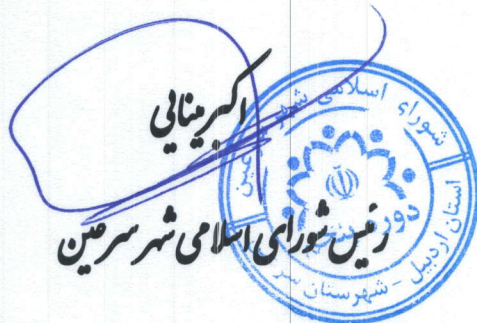 اکبر مینائی
رئیس شورای اسلامی شهر سرعین
شورای اسلامی شهر
عین
استان اردبیل - شهرستان سر
دور